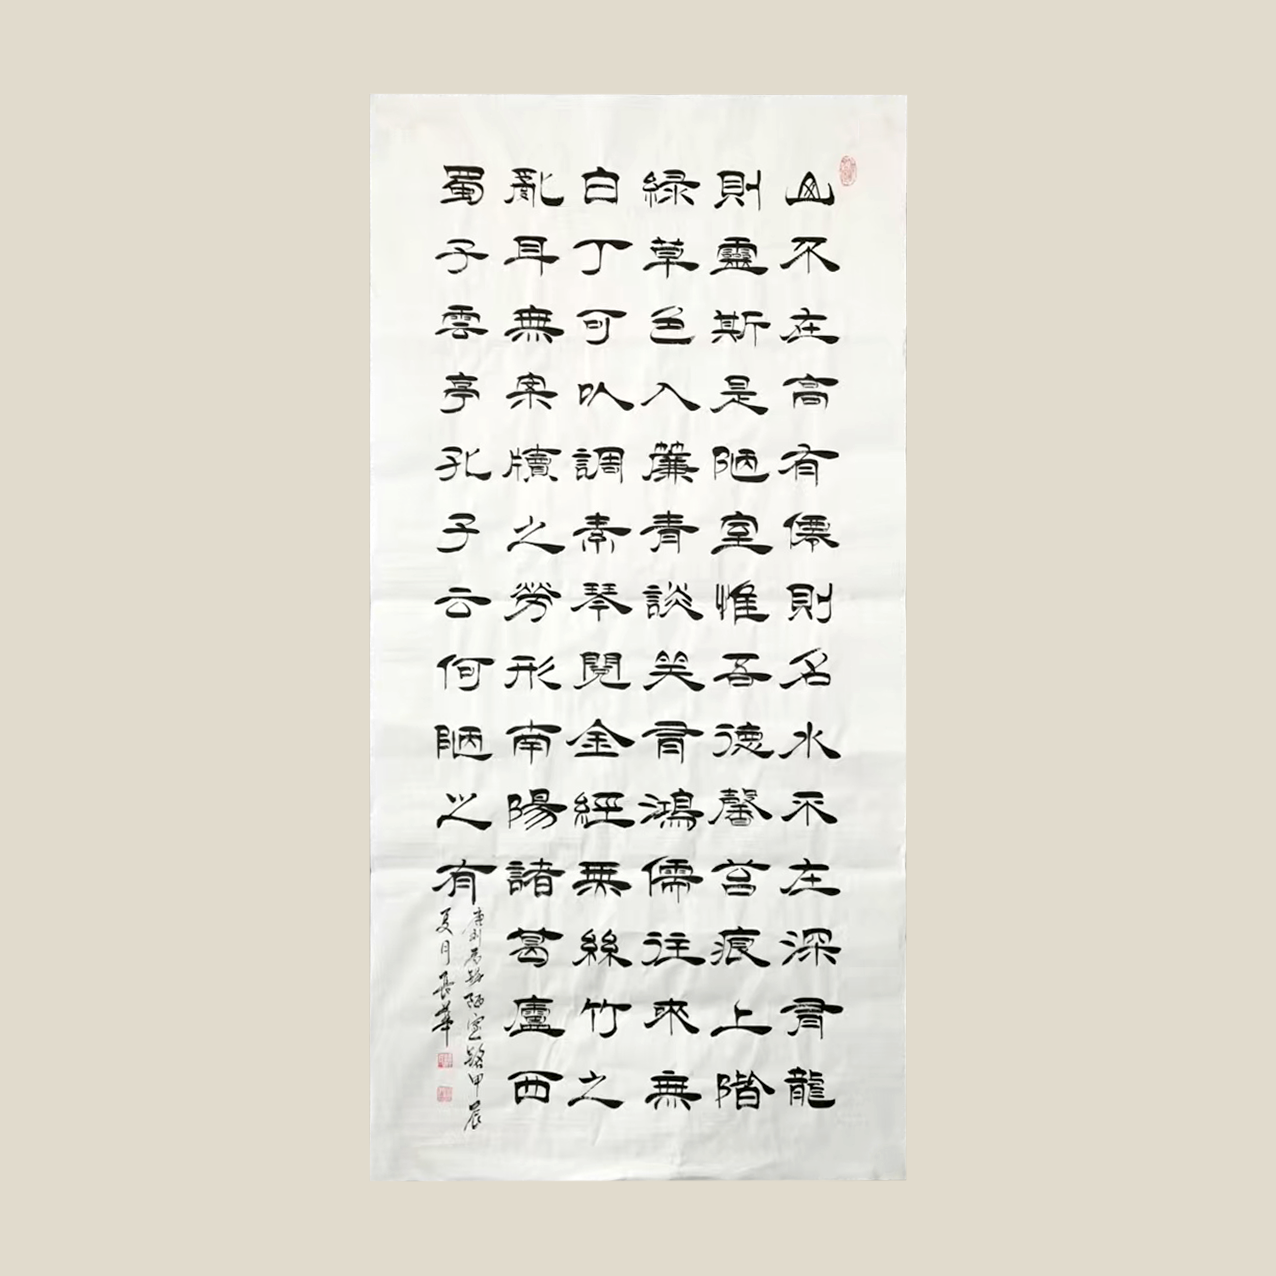 山不在高有僊則名水不在深有龍
則靈斯是陋室惟吾德馨苔痕上階
綠草色入簾青談笑有鴻儒往來無
白丁可以調素琴閱金經無絲竹之
亂耳無案牘之勞形南陽諸葛廬西
蜀子雲亭孔子云何陋之有
唐劉禹錫陋室銘甲辰
夏月華